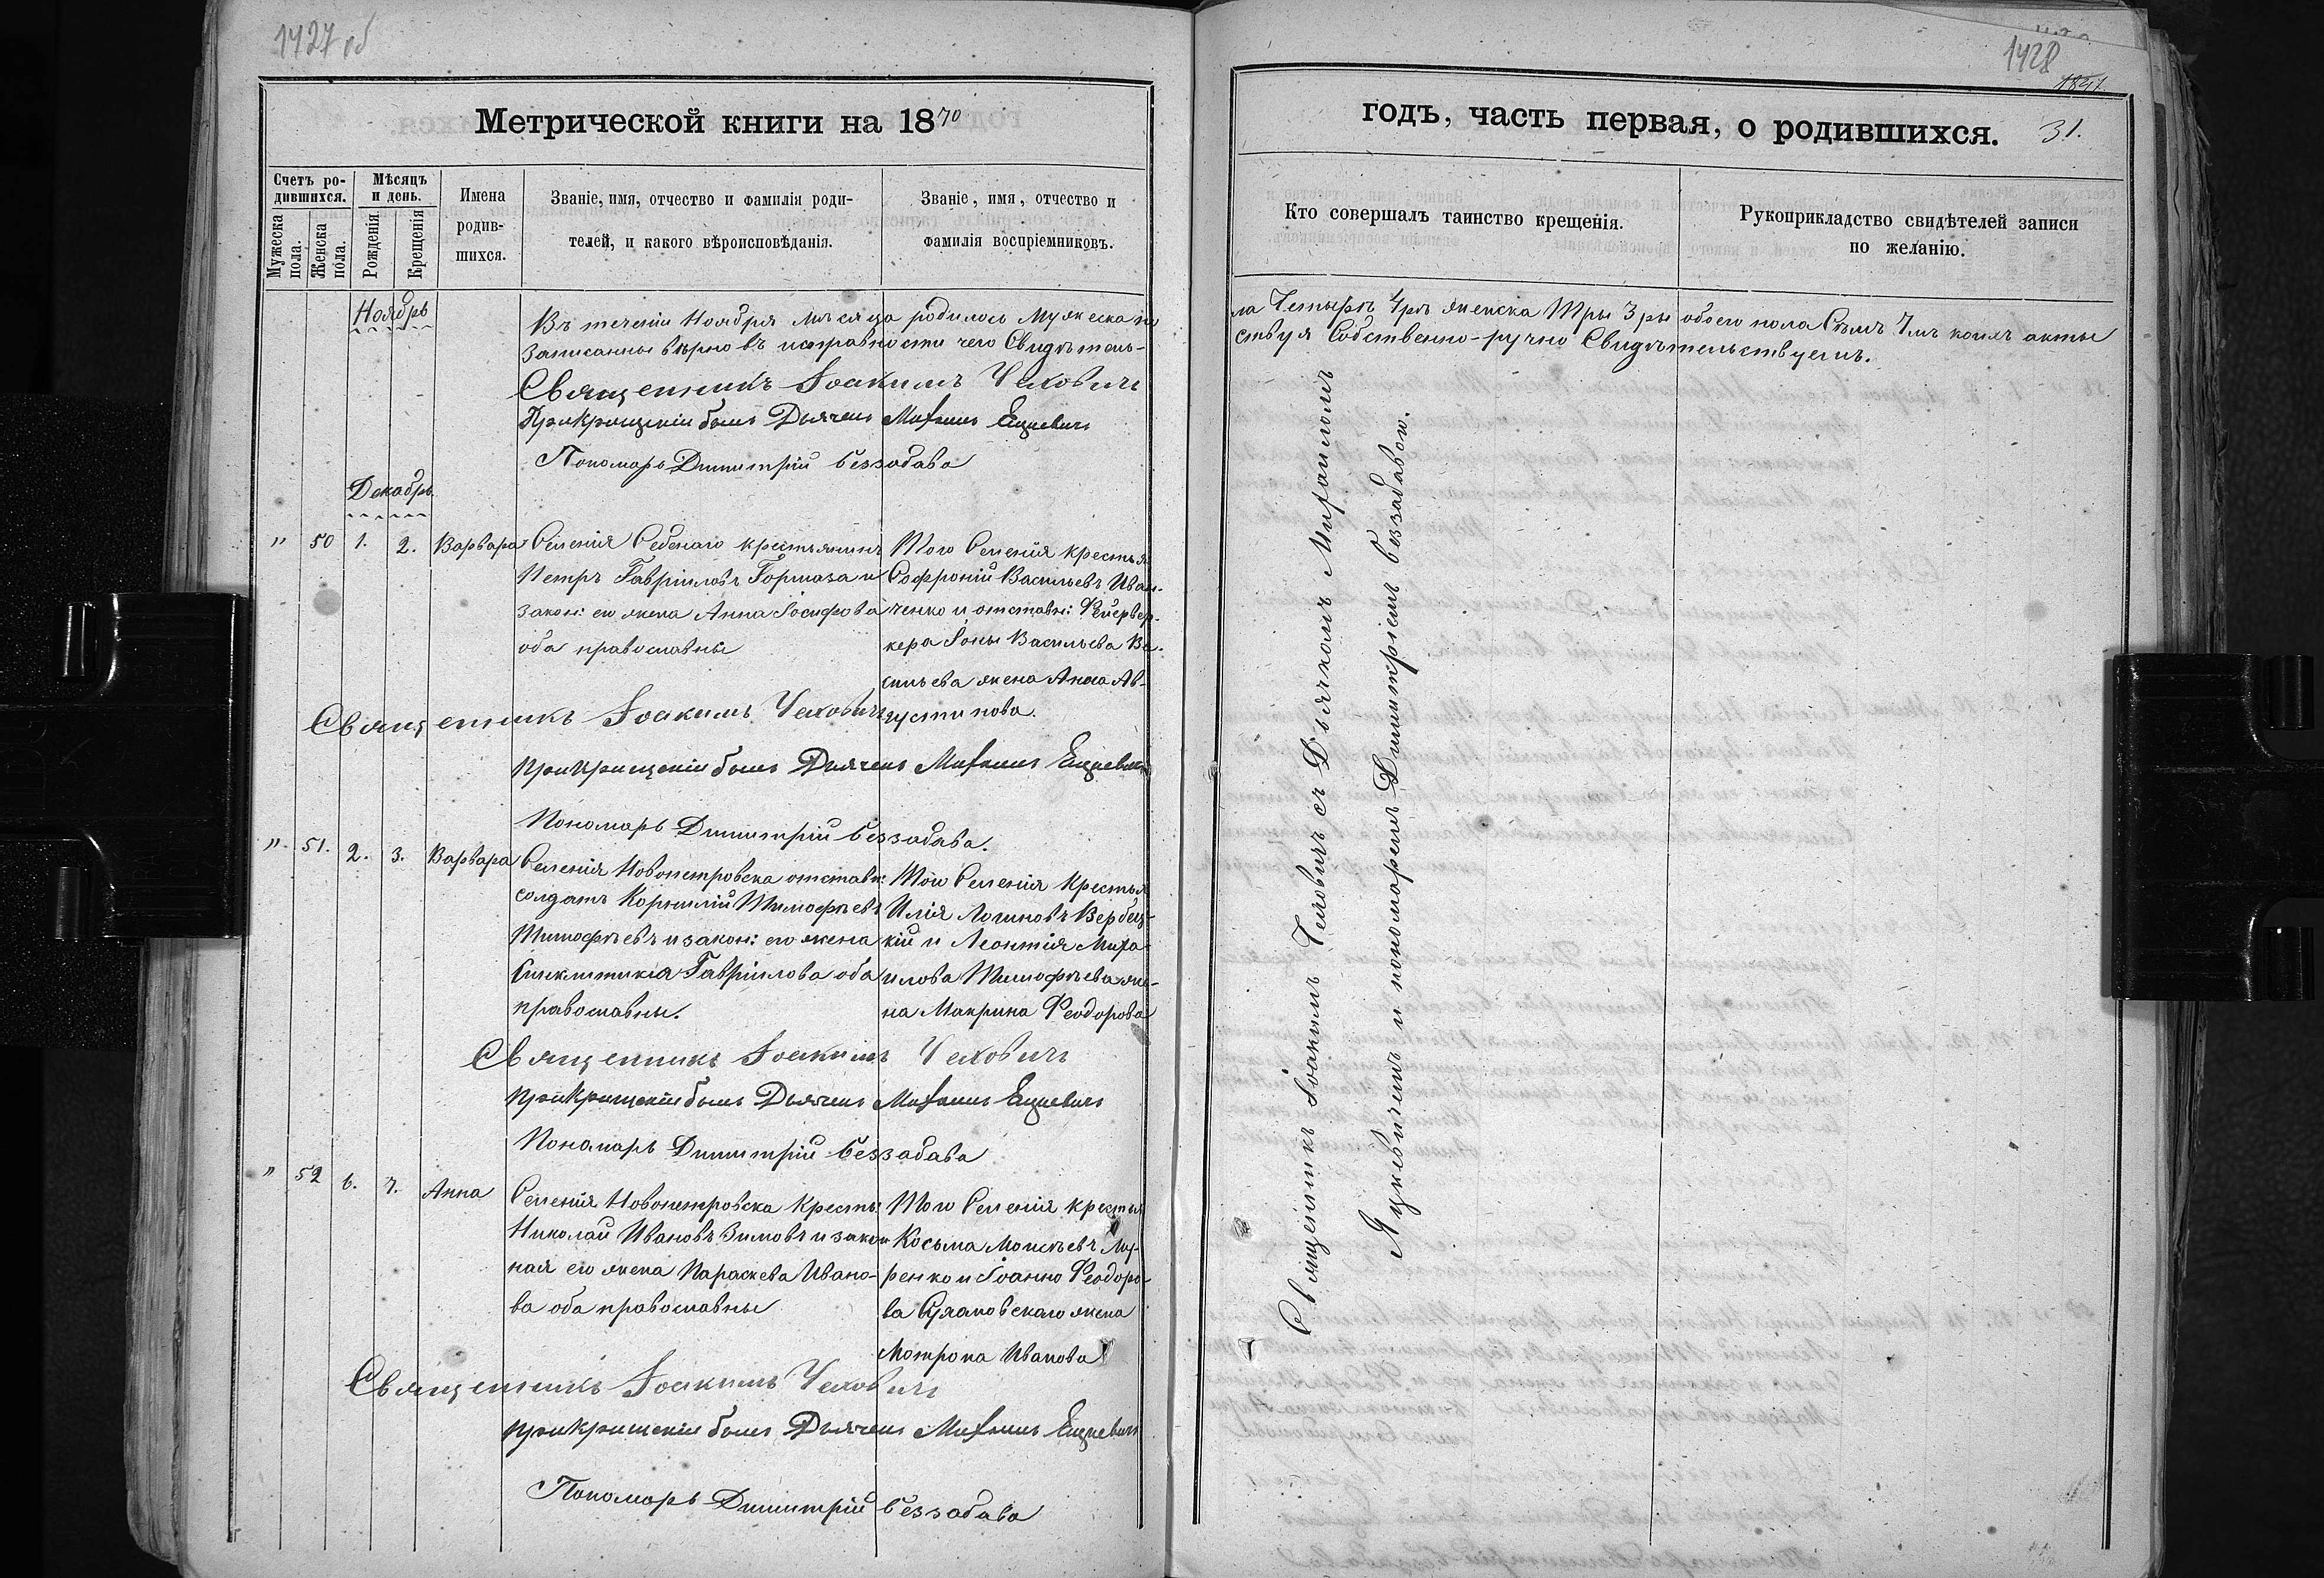 1427 об
Метрической книги на 1870
Счетъ ро-
дившихся.
Мужеска
пола.
Женска
пола.
Мѣсяцъ
и день.
Рожденія.
Крещенія
Имена
родив-
шихся.
Званіе, имя, отчество и фамилія роди-
телей, и какого вѣроисповѣданія.
Званіе, имя, отчество и
фамилія воспріемниковъ.
Ноябрь
Въ теченіи Ноября мѣсяца родилось Мужеска по
записанны вѣрно въ исправности чего Свидѣтель-
Священникъ Іоакимъ Чеховичъ
При крещеніи былъ Дьячекъ Михаилъ Яцкевичъ
Пономарь Димитрій Беззабава
Декабрь.
" 50 1. 2. Варвара
Селенія крестьянинъ
Петръ Гавріиловъ Гормаза и
закон: его жена Анна Іосифова
оба православные
Того Селенія крестья
Софроній Васильевъ Иван-
ченко и отставн: Фейервер-
кера Іоны Васильева Ва-
сильева жена Анна Ав-
густинова.
Священникъ Іоакимъ Чеховичъ
При крещеніи былъ Дьячекъ Михаилъ Яцкевичъ
Пономарь Димитрій Беззабава.
" 51. 2. 3. Варвара
Селенія Новопетровска отставн:
солдатъ Корнилій Тимофѣевъ
Тимофѣевъ и закон: его жена
Синклитикія Гавріилова оба
православны.
Того Селенія Крестья
Илія Логиновъ Вербец-
кій и Леонтія Миха-
илова Тимофѣева же-
на Макрина Феодорова
Священникъ Іоакимъ Чеховичъ
При крещеніи былъ Дьячекъ Михаилъ Яцкевичъ
Пономарь Димитрій Беззабава
" 52 6. 7. Анна
Селенія Новопетровска Кресть:
Николай Ивановъ Зимовъ и закон
ная его жена Параскева Ивано-
ва оба православны
Того Селенія крестья
Косьма Моисѣевъ
ренко и Іоанна Феодоро-
ва жена
Мотрона Иванова
Священникъ Іоакимъ Чеховичъ
При крещеніи былъ Дьячекъ Михаилъ Яцкевичъ
Пономарь Димитрій Беззабава
1428
годъ, часть первая, о родившихся. 31.
Кто совершалъ таинство крещенія.
Рукоприкладство свидѣтелей записи
по желанію.
ла Четыре 4ре женска Три 3ри обоего пола Семь 7мь коихъ акты
ствуя Собственно-ручно Свидѣтельствуемъ.
Священникъ Іоакимъ Чеховичъ съ Дьячкомъ Михаиломъ
Яцкевичемъ и пономаремъ Димитріемъ Беззабавою.